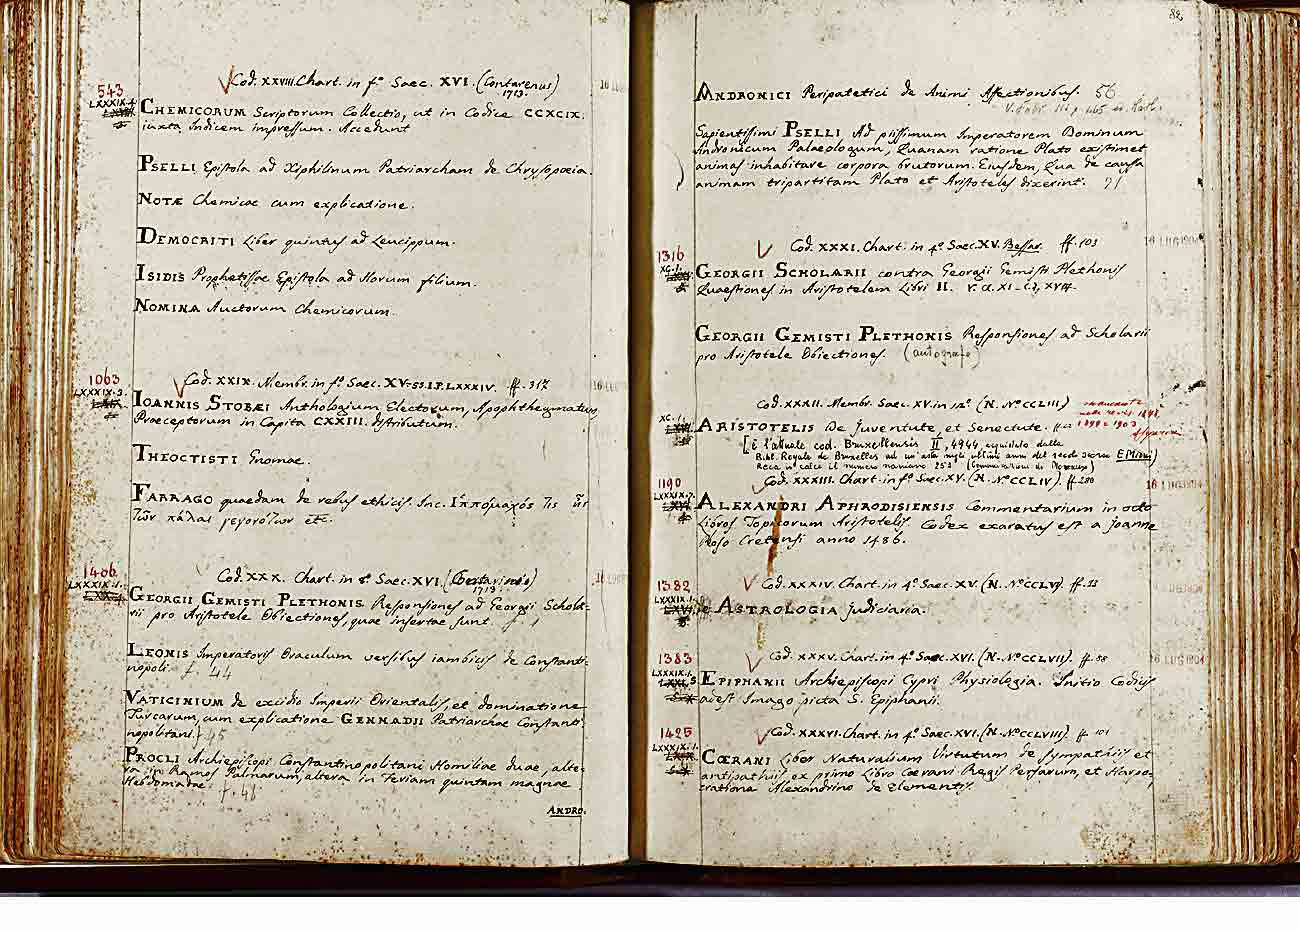 543
Cod. XXVIII. Chart. in fº. Saec. XVI. (Contarenus)
1713.
16 LUG
LXXXIX. 4
CHEMICORUM Scriptorum Collectio, ut in Codice CCXCIX.
iuxta Indicem impressum. Accedunt
PSELLI Epistola ad Xiphilinum Patriarcham de Chrysopœia.
NOTÆ Chemicae cum explicatione.
DEMOCRITI Liber quintus ad Leucippum.
ISIDIS Prophetissae Epistola ad Horum filium.
NOMINA Auctorum Chemicorum.
1063
Cod. XXIX. Membr. in fº. Saec. XV. ff. 317
16 LUG
LXXXIX. 3.
IOANNIS STOBÆI Anthologium Electorum, Apophthegmatum,
Praeceptorum in Capita CXXIII. distributum.
THEOCTISTI Gnomae.
FARRAGO quaedam de rebus ethicis. Inc. Ἱππόμαχός τις
τῶν πάλαι γεγονότων etc.
1406
Cod. XXX. Chart. in 8º. Saec. XVI.
1713.
LXXXIX. 1.
GEORGII GEMISTI PLETHONIS Responsiones ad Georgii Schola-
rii pro Aristotele Obiectiones, quae insertae sunt. f. 1
LEONIS Imperatoris Oraculum versibus iambicis de Constanti-
nopoli. f. 44
VATICINIUM de excidio Imperii Orientalis, et dominatione
Turcarum, cum explicatione GENNADII Patriarchae Constanti-
nopolitani. f. 45
PROCLI Archiepiscopi Constantinopolitani Homiliae duae, alte-
ra in Ramos Palmarum, altera in Feriam quintam magnae
Hebdomadae. f. 48
ANDRO.
82
ANDRONICI Peripatetici de Animi Affectionibus. 56
Sapientissimi PSELLI Ad piissimum Imperatorem Dominum
Andronicum Palaeologum, Quanam ratione Plato existimet
animas inhabitare corpora brutorum. Eiusdem, Qua de causa
animam tripartitam Plato et Aristoteles dixerint. 71
1316
Cod. XXXI. Chart. in 4º. Saec. XV. Bessar. ff. 103
16 LUG 1904
XC. 1.
GEORGII SCHOLARII contra Georgii Gemisti Plethonis
Quaestiones in Aristotelem Libri II. v. cl. XI
GEORGII GEMISTI PLETHONIS Responsiones ad Scholarii
pro Aristotele Obiectiones. (autografo)
Cod. XXXII. Membr. Saec. XV. in 12º. (N. Nº CCLIII)
mancante
XC. 1.
ARISTOTELIS De Juventute, et Senectute.
[È l'attuale cod. Bruxellensis II, 4944, acquistato dalla
Bibl. Royale de Bruxelles ad un'asta negli ultimi anni del secolo scorso E. Mioni)
1190
Cod. XXXIII. Chart. in fº. Saec. XV. (N. Nº CCLIV). ff. 280
16 LUG 1904
LXXXIX. 7.
ALEXANDRI APHRODISIENSIS Commentarium in octo
Libros Topicorum Aristotelis. Codex exaratus est a Joanne
Roso Cretensi anno 1486.
1382
Cod. XXXIV. Chart. in 4º. Saec. XV. (N. Nº CCLVI) ff.
LXXXIX. 1.
de ASTROLOGIA judiciaria.
1383
Cod. XXXV. Chart. in 4º. Saec. XVI. (N. Nº CCLVII). ff. 88
16 LUG 1904
LXXXIX. 1.
EPIPHANII Archiepiscopi Cypri Physiologia. Initio Codicis
adest Imago picta S. Epiphanii.
1425
Cod. XXXVI. Chart. in 4º. Saec. XVI. (N. Nº CCLVIII) ff. 101
LXXXIX. 1.
CŒRANI Liber Naturalium Virtutum de sympathiis et
antipathiis, ex primo Libro Cœrani Regis Persarum, et Harpo-
cratione Alexandrino de Elementis.